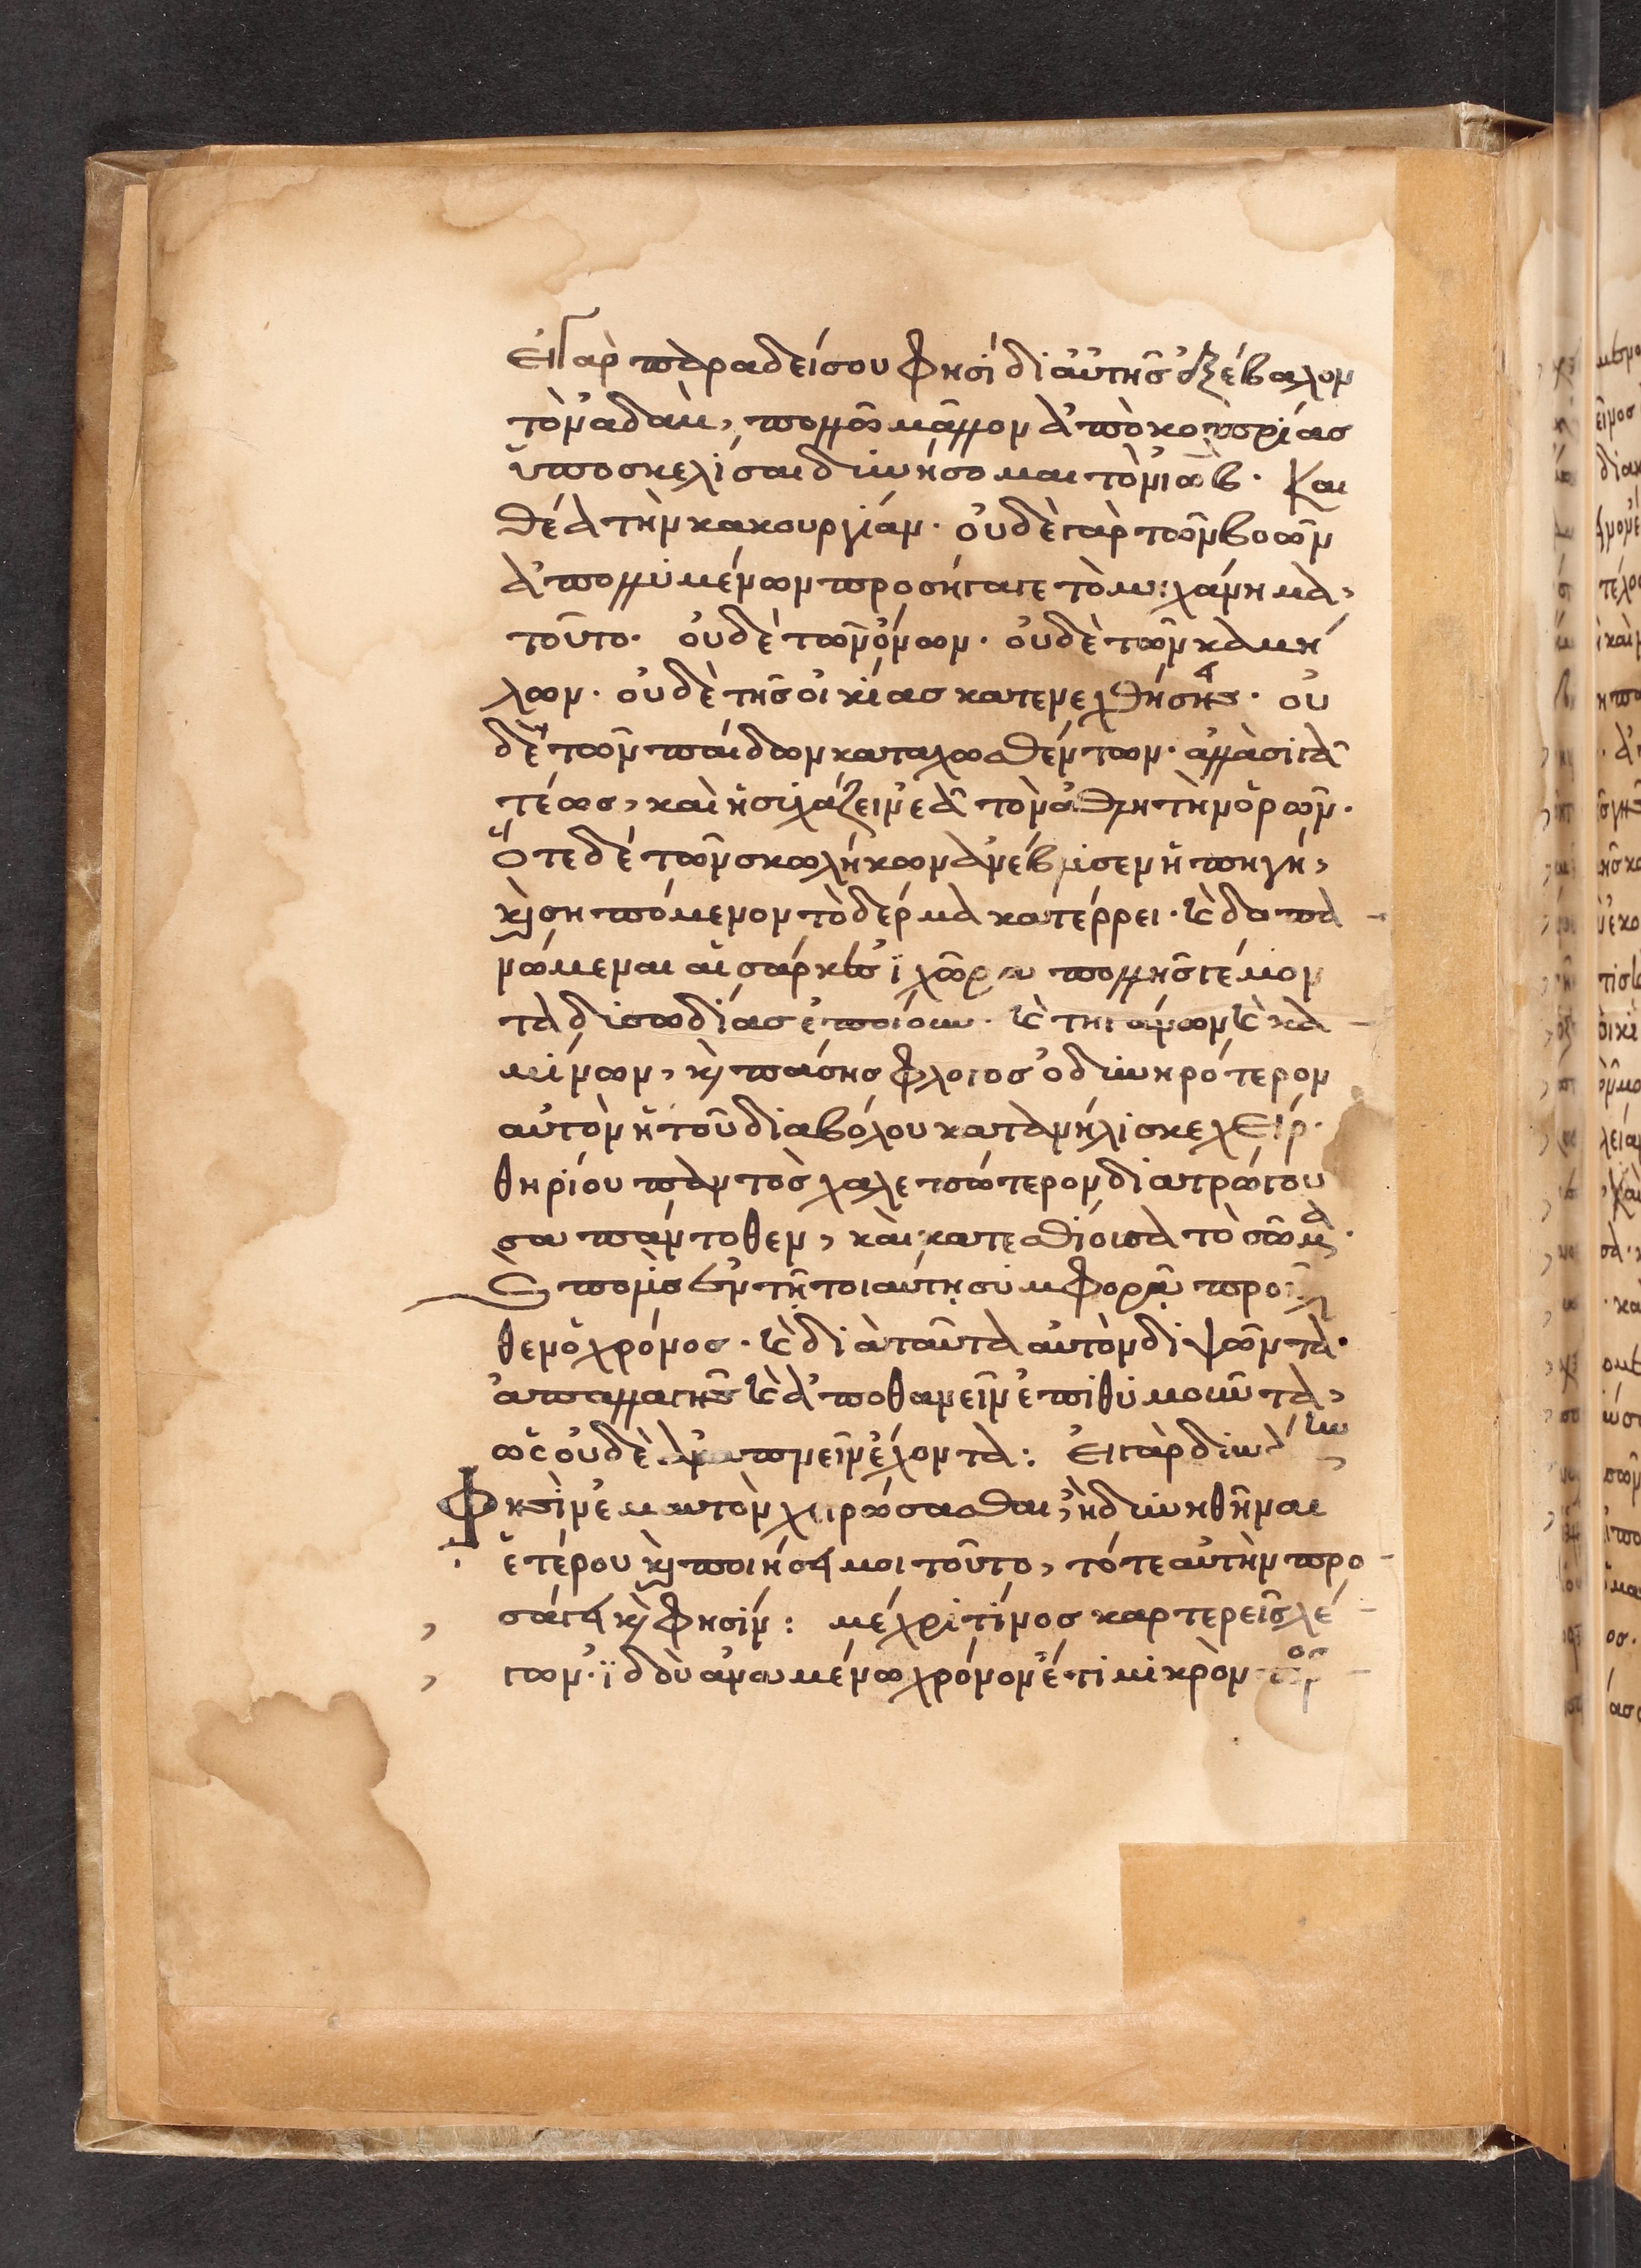 Εἰ γὰρ παραδείσου φησὶ δι αὐτῆς ἐξέβαλον
τὸν ἀδὰμ, πολλῶ μᾶλλον ἀπὸ κοπρίας
ὑποσκελίσαι δυνήσομαι τὸν ἰώβ. Και
θέα τὴν κακουργίαν. οὐδὲ γὰρ τῶν βοῶν
ἀπολλυμένων προσήγαγε τὸ μηχάνημα,
τοῦτο. οὐδὲ τῶν ὄνων. οὐδὲ τῶν καμή
λων. οὐδὲ τῆς οἰκίας κατενεχθήσης. οὐ
δὲ τῶν παίδων καταχωσθέντων. ἀλλὰ σιγᾶ
τέως, καὶ ἡσυχάζειν ἐᾶ τὸν ἀθλητὴν ὁρῶν.
Ὅτε δὲ τῶν σκωλήκων ἀνέβλυσεν ἡ πηγή,
κỳ σηπόμενον τὸ δέρμα κατέρρει. κὲ δαπα
νώμεναι αἱ σάρκες ἰχῶρα πολλῆς γέμον
τα δυσωδίας ἐποίουν. κὲ τηγάνων κὲ κα
μίνων, κỳ πάσης φλογὸς ὀδυνηρότερον
αὐτὸν ἡ τοῦ διαβόλου κατανήλισκε χείρ.
θηρίου παντὸς χαλεπώτερον διατρώγου
σα πάντοθεν, καὶ κατεσθίουσα τὸ σῶμα.
ἐν τῇ τοιαύτῃ συμφορᾷ
θεν ὁ χρόνος. κὲ διὰ ταῦτα αὐτὸν διψῶντα.
ἀπαλλαγῆς κὲ ἀποθανεῖν ἐπιθυμοῦντα,
ὡς οὐδὲ ἀναπνεῖν ἔχοντα: Εἰ γὰρ δυναίμην
φησὶν ἐμαυτὸν χειρώσασθαι, ἢ δυνηθῆναι
ἑτέρου κỳ ποιήσει μοι τοῦτο, τότε αὐτὴν προ
σάγει κỳ φησίν: μέχρι τίνος καρτερεῖς λέ
γων. ἰδοὺ ἀναμένω χρόνον ἔτι μικρὸν